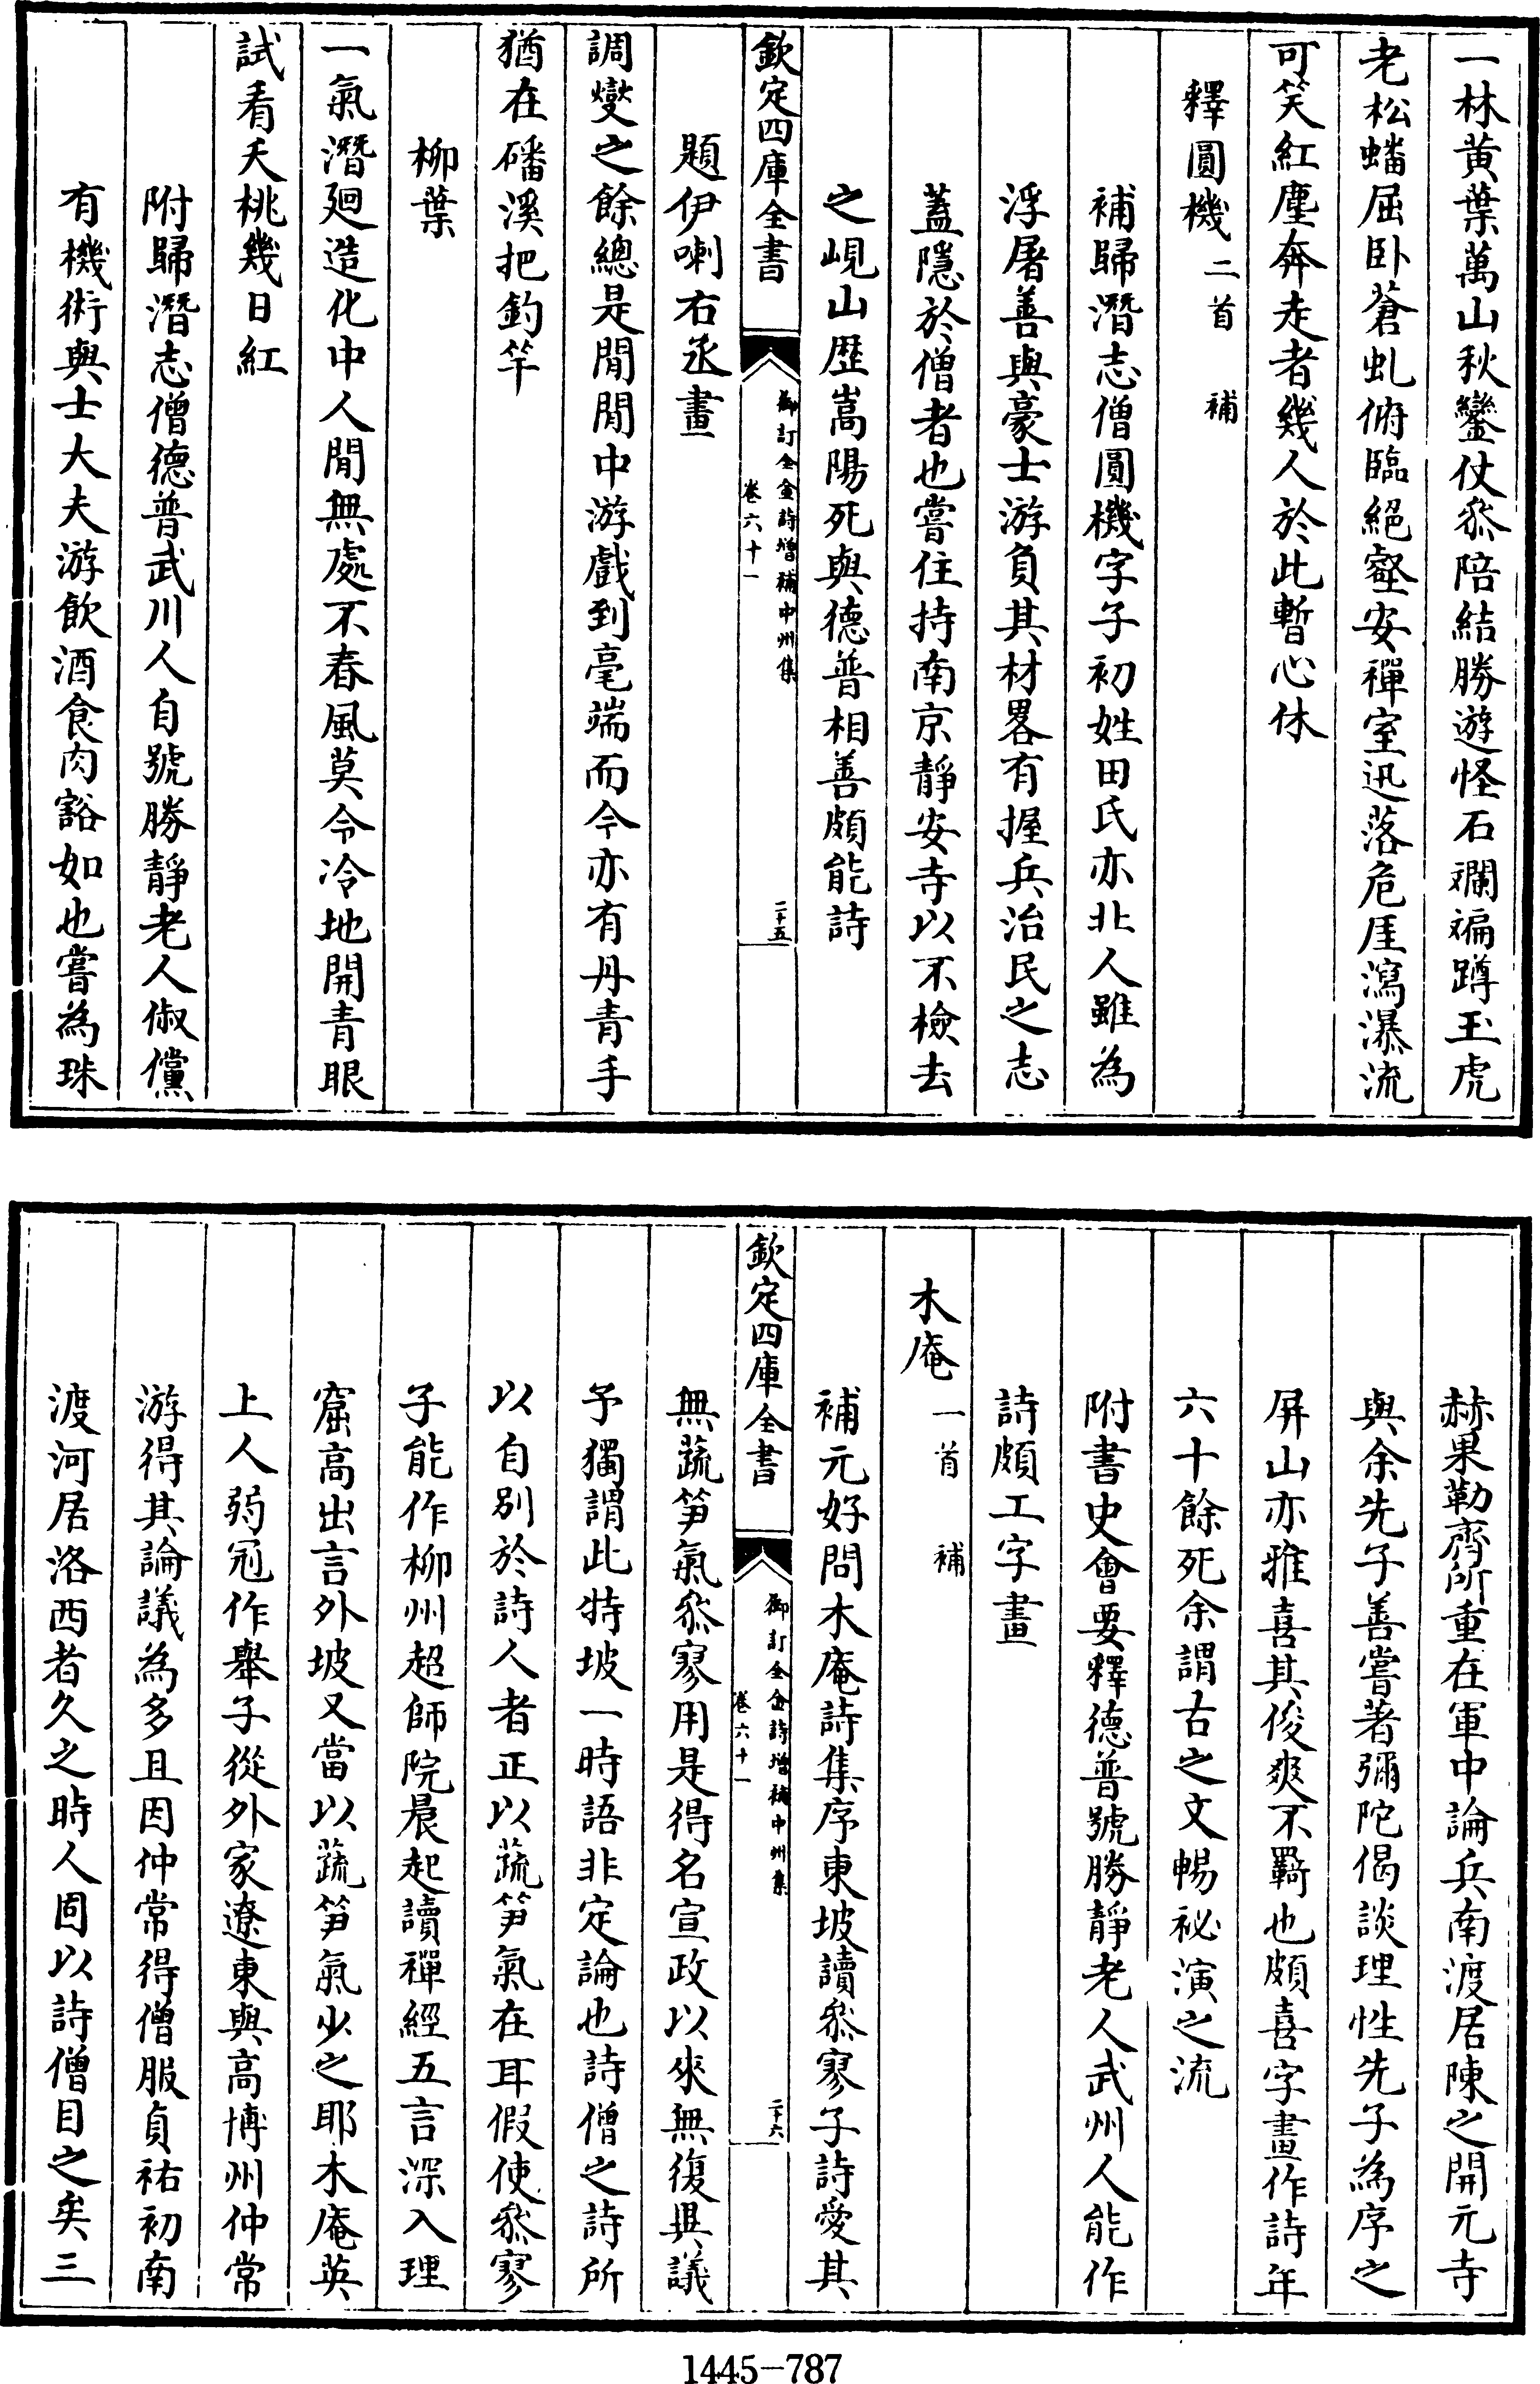 一林黄葉萬山秋鑾仗叅陪結勝遊怪石斕斒蹲玉虎
老松蟠屈卧蒼虬俯臨絕壑安禪室迅落危厓瀉瀑流
可笑紅塵奔走者幾人於此暫心休
釋圓機二首 補
補歸潛志僧圓機字子初姓田氏亦北人雖為
浮屠善與豪士游負其材畧有握兵治民之志
蓋隱於僧者也嘗住持南京靜安寺以不檢去
之峴山歴嵩陽死與德普相善頗能詩
欽定四庫全書
御訂全金詩增補中州集
卷六十一
二十五
題伊喇右丞畫
調燮之餘總是閒閒中游戲到毫端而今亦有丹青手
猶在磻溪把釣竿
柳葉
一氣潛廻造化中人間無處不春風莫令冷地開青眼
試看夭桃幾日紅
附歸潛志僧德普武川人自號勝靜老人俶儻
有機術與士大夫游飲酒食肉豁如也嘗為珠
赫果勒齊所重在軍中論兵南渡居陳之開元寺
與余先子善嘗著彌陀偈談理性先子為序之
屏山亦雅喜其俊爽不羇也頗喜字畫作詩年
六十餘死余謂古之文暢祕演之流
附書史會要釋德普號勝靜老人武州人能作
詩頗工字畫
木庵一首 補
補元好問木庵詩集序東坡讀叅寥子詩愛其
欽定四庫全書
御訂全金詩增補中州集
卷六十一
二十六
無蔬笋氣叅寥用是得名宣政以來無復異議
予獨謂此特坡一時語非定論也詩僧之詩所
以自别於詩人者正以蔬笋氣在耳假使叅寥
子能作柳州超師院晨起讀禪經五言深入理
窟高出言外坡又當以蔬笋氣少之耶木庵英
上人弱冠作舉子從外家遼東與高博州仲常
游得其論議為多且因仲常得僧服貞祐初南
渡河居洛西者久之時人固以詩僧目之矣三
1445-787